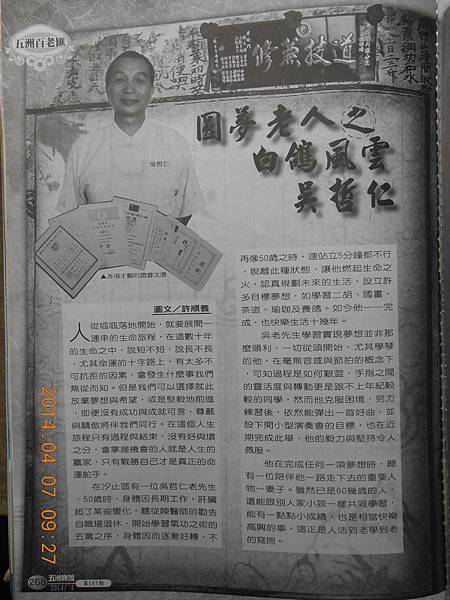 五洲百老匯
道技藝修
圓夢老人之
白鴿風雲
吳哲仁
吳哲仁
▲各項才藝的證書文憑
圖文／許順義
人從呱呱落地開始，就要展開一
連串的生命旅程，在這數十年
的生命之中，說短不短，說長不長
，尤其命運的十字路上，有太多不
可抗拒的因素，會發生什麼事我們
無從而知。但是我們可以選擇就此
放棄夢想與希望，或是堅毅地前進
，即便沒有成功與成就可言，尊嚴
與驕傲將伴我們同行。在這個人生
旅程只有過程與結束，沒有好與壞
之分，會掌握機會的人就是人生的
贏家，只有戰勝自己才是真正的命
運舵手。
在汐止區有一位吳哲仁老先生
，50歲時，身體因長期工作，肝臟
起了某些變化，聽從陳醫師的勸告
自職場退休，開始學習氣功之術的
五禽之序，身體因而逐漸好轉，不
再像50歲之時，連站立5分鐘都不行
，脫離此種狀態，讓他燃起生命之
火，認真規劃未來的生活，設立許
多目標夢想，如學習二胡、國畫、
茶道、瑜珈及養鴿。如今他一一完
成，也快樂生活十幾年。
吳老先生學習實現夢想並非那
麼順利，一切從頭開始，尤其學琴
的他，在毫無音感與節拍的概念下
，可知過程是如何艱澀，手指之間
的靈活度與轉動更是跟不上年紀較
輕的同學，然而他克服困境，努力
練習後，依然能彈出一首好曲，並
設下開小型演奏會的目標，也在近
期完成此舉，他的毅力與堅持令人
佩服。
他在完成任何一項夢想時，總
有一位陪伴他一路走下去的重要人
物～妻子。雖然已是60幾歲的人，
還能跟別人家小孩一樣共同學習，
能有一點點小成績，也是相當快樂
高興的事，這正是人活到老學到老
的寫照。
268
五洲賽鴿
2014／4
第187期
2014.04.07 09:27